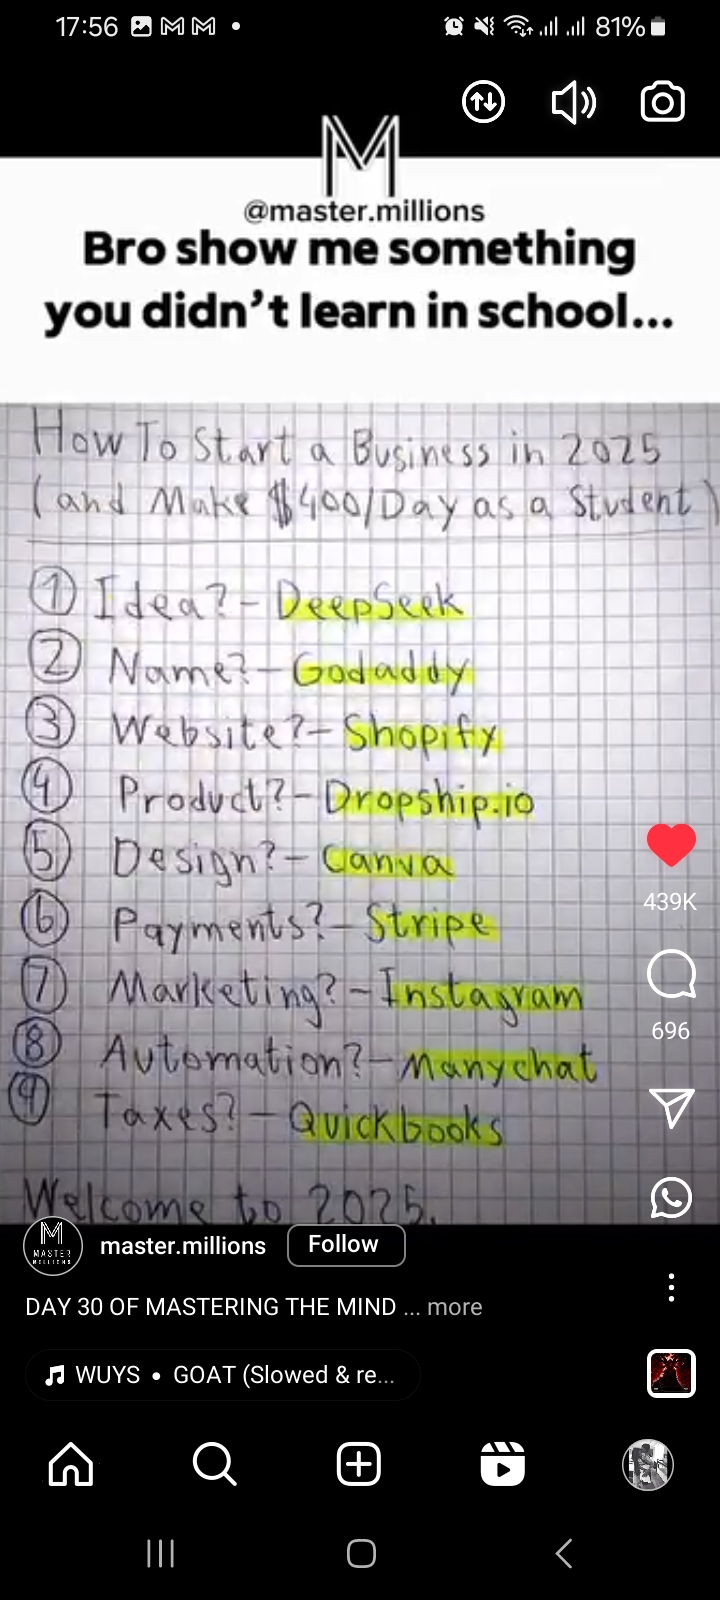 17:56
81%
M
@master.millions
Bro show me something
you didn't learn in school...
How To Start a Business in 2025
(and Make $400/Day as a Student)
① Idea? - DeepSeek
② Name? - Godaddy
③ Website? - Shopify
④ Product? - Dropship.io
⑤ Design? - Canva
⑥ Payments? - Stripe
⑦ Marketing? - Instagram
⑧ Automation? - Manychat
⑨ Taxes? - Quickbooks
Welcome to 2025.
439K
696
M
MASTER
MILLIONS
master.millions
Follow
DAY 30 OF MASTERING THE MIND ... more
WUYS • GOAT (Slowed & re...